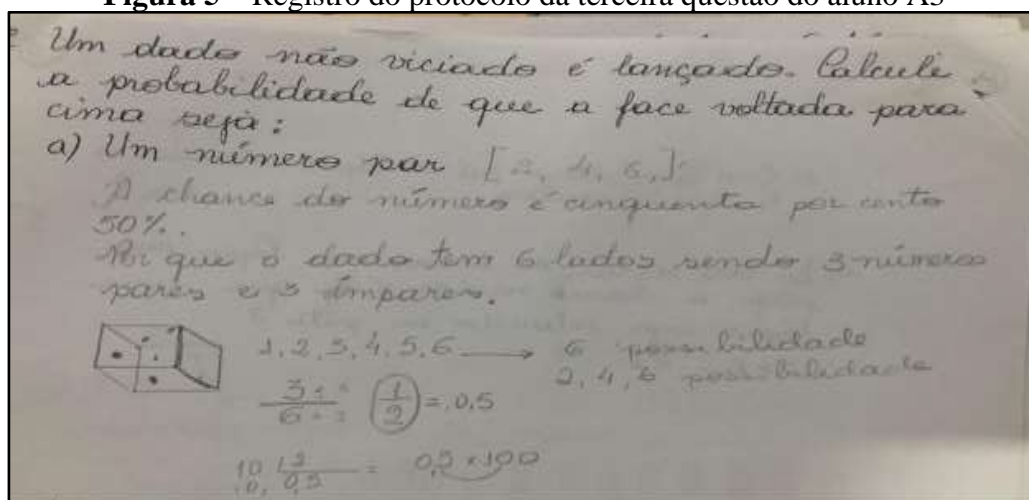 Figura 5 – Registro do protocolo da terceira questão do aluno A3
Um dado não viciado é lançado. Calcule
a probabilidade de que a face voltada para
cima seja:
a) Um número par [2, 4, 6,]:
A chance do número é cinquenta por cento
50%.
Por que o dado tem 6 lados sendo 3 números
pares e 3 ímpares.
1, 2, 3, 4, 5, 6 → 6 possibilidade
2, 4, 6 possibilidade
3 ÷ 3
6 ÷ 3
1
2
= 0,5
10 2
0, 0,5
= 0,5 × 100